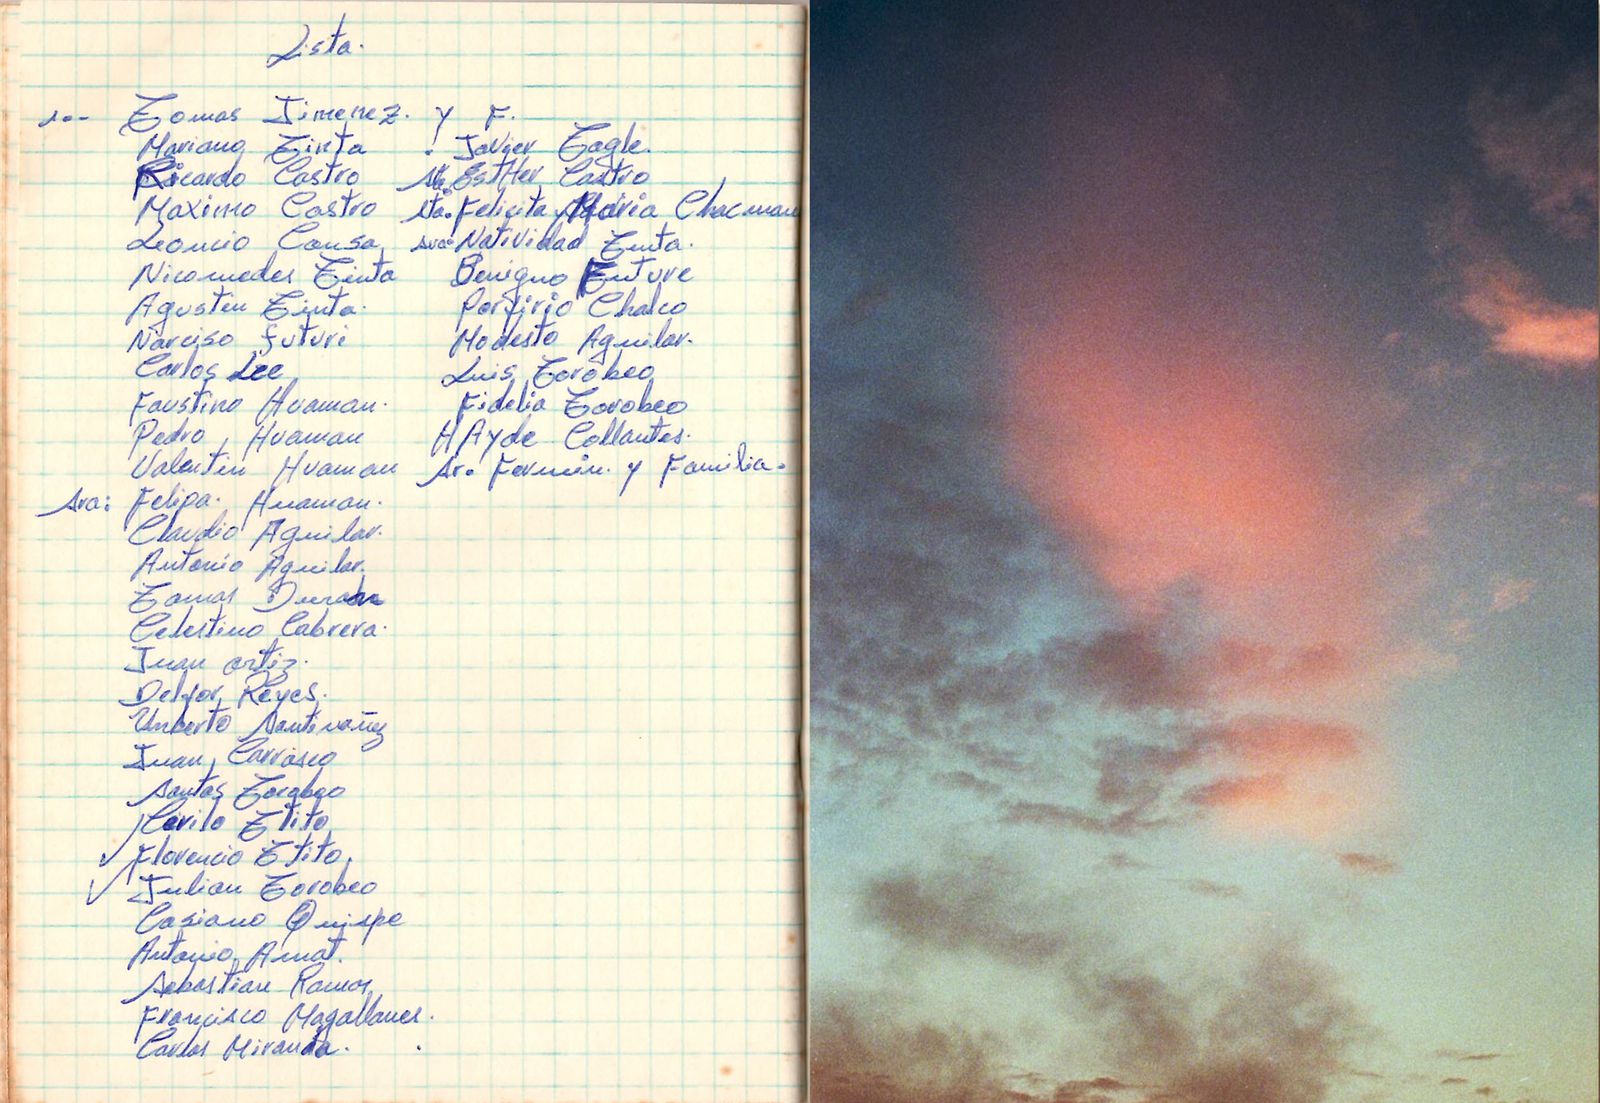 Lista.
10- Tomas Jimenez. y F.
Mariano Tinta
Ricardo Castro
Maximo Castro
Leoncio Causa
Nicomedes Tinta
Agustin Tinta.
Narciso futuri
Carlos Lee
Faustino Huaman.
Pedro Huaman
Valentin Huaman
Sra: Felipa. Huaman.
Claudio Aguilar.
Antonio Aguilar.
Tomas Duran
Celestino Cabrera.
Juan ortiz.
Delfor Reyes.
Unberto Santivañez
Juan Carrasco
Santos Torobeo
Cerilo Ttito
Florencio Ttito.
Julian Torobeo
Casiano Quispe
Antonio Amat.
Sebastian Ramos
Francisco Magallanes.
Carlos Miranda.
Javier Tagle.
Sta. EstHer Castro
Sta. Felicita Maria Chacman
Sra: Natividad Tinta.
Benigno
Porfirio Chalco
Modesto Aguilar.
Luis Torobeo
Fidelia Torobeo
HAyde Collantes.
Sr. Fermin. y Familia.